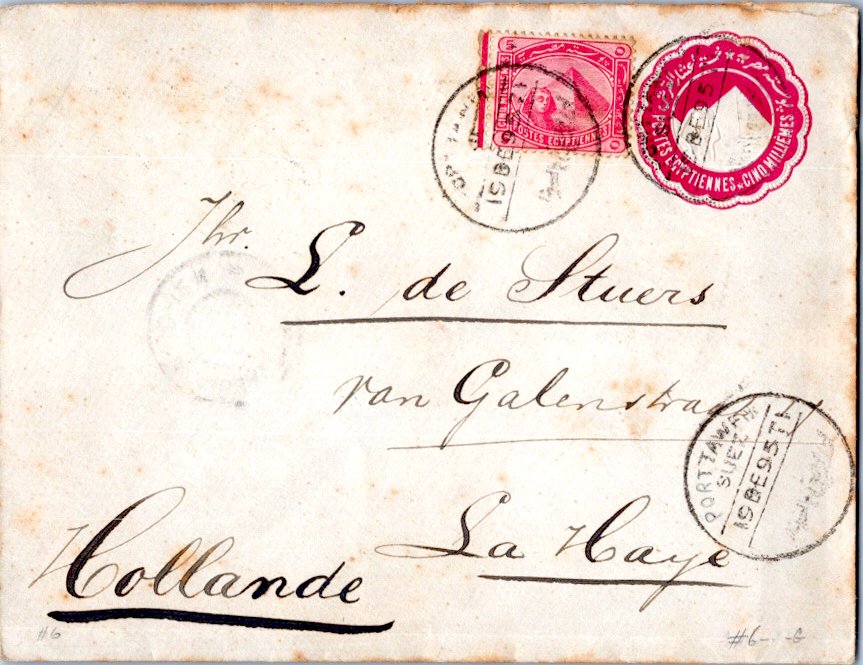 5
POSTES EGYPTIENNES
POSTES EGYPTIENNES CINQ MILLIEMES
19 DE 95 T I
Jhr.
L. de Stuers
van Galenstraat
PORT TAWFIK
SUEZ
19 DE 95 T I
La Haye
Hollande
#6
#6- -G